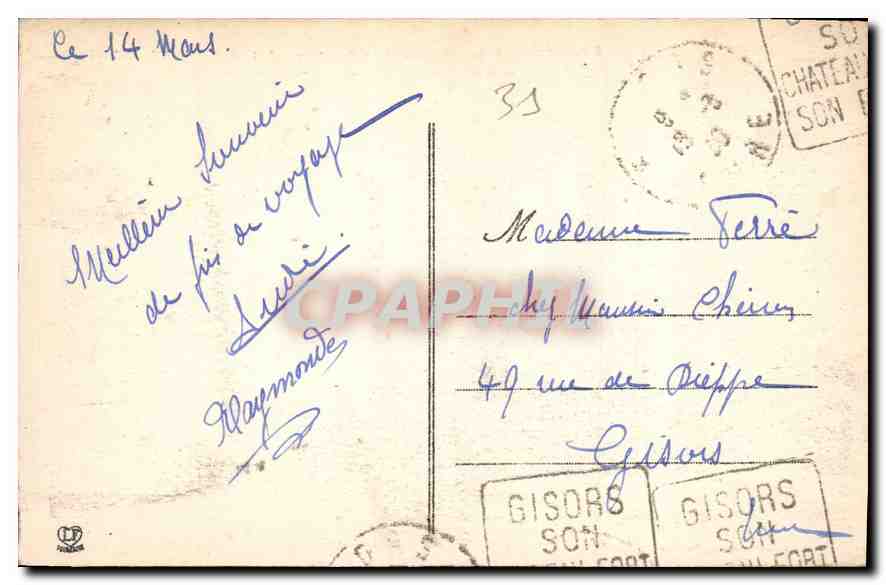 Le 14 Mars.
Meilleur Souvenir
de fin de voyage
André.
Raymonde
31
SO
CHATEAU
SON
Madame Ferré
chez Monsieur
49 rue de Dieppe
Gisors
Eure
GISORS
SON
FORT
GISORS
SON
FORT
CPAPHIL